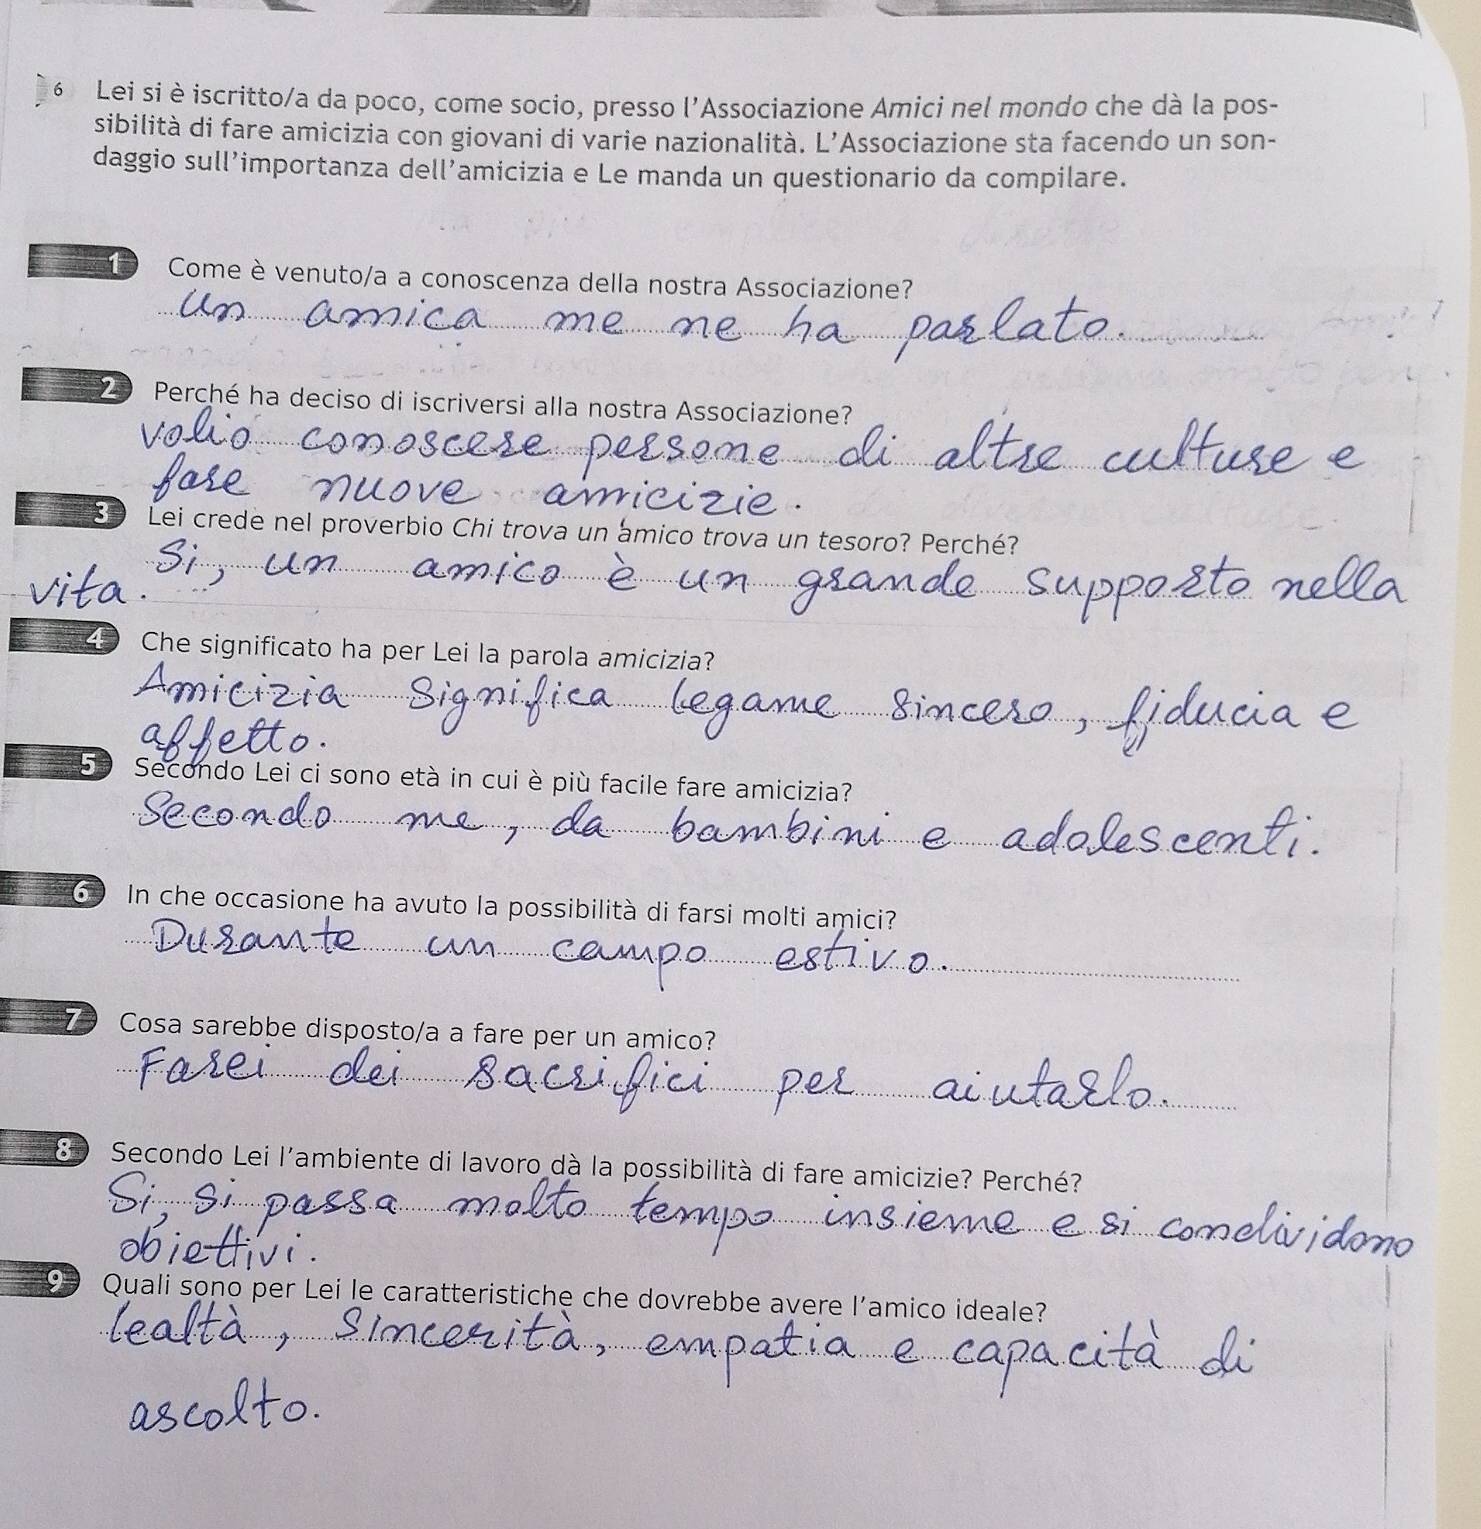 6 Lei si è iscritto/a da poco, come socio, presso l'Associazione Amici nel mondo che dà la pos-
sibilità di fare amicizia con giovani di varie nazionalità. L'Associazione sta facendo un son-
daggio sull'importanza dell'amicizia e Le manda un questionario da compilare.
1 Come è venuto/a a conoscenza della nostra Associazione?
Un amica me ne ha parlato.
2 Perché ha deciso di iscriversi alla nostra Associazione?
Volio conoscere persone di altre culture e
fare nuove amicizie.
3 Lei crede nel proverbio Chi trova un amico trova un tesoro? Perché?
Si, un amico è un grande supporto nella
vita.
4 Che significato ha per Lei la parola amicizia?
Amicizia significa legame sincero, fiducia e
affetto.
5 Secondo Lei ci sono età in cui è più facile fare amicizia?
Secondo me, da bambini e adolescenti.
6 In che occasione ha avuto la possibilità di farsi molti amici?
Durante un campo estivo.
7 Cosa sarebbe disposto/a a fare per un amico?
Farei dei sacrifici per aiutarlo.
8 Secondo Lei l'ambiente di lavoro dà la possibilità di fare amicizie? Perché?
Si, si passa molto tempo insieme e si condividono
obiettivi.
9 Quali sono per Lei le caratteristiche che dovrebbe avere l'amico ideale?
lealtà, sincerità, empatia e capacità di
ascolto.